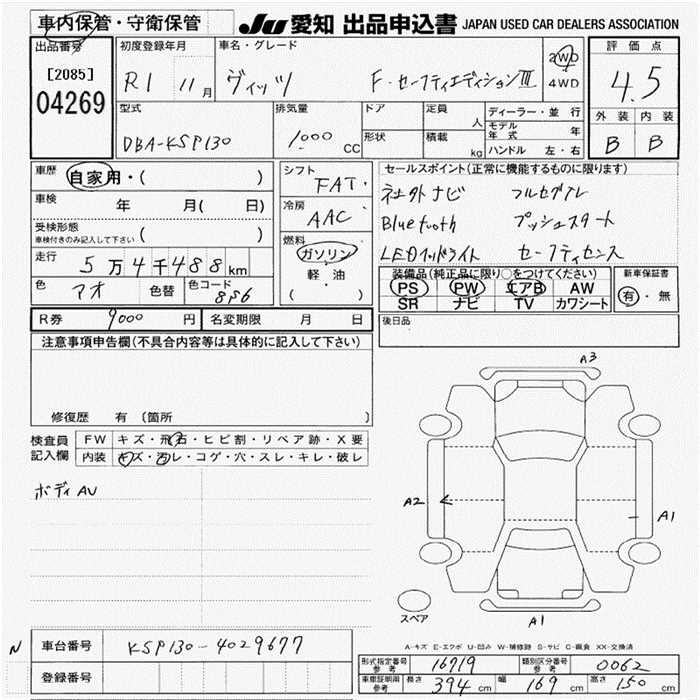 車内保管・守衛保管
JU 愛知 出品申込書 JAPAN USED CAR DEALERS ASSOCIATION
出品番号
[2085]
04269
初度登録年月
R1 11月
車名・グレード
ヴィッツ F・セーフティエディションIII
2WD
4WD
評価点
4.5
外装 内装
B B
型式
DBA-KSP130
排気量
1000 CC
ドア
形状
定員 人
積載 kg
ディーラー・並行
モデル年式 年
ハンドル 左・右
車歴
自家用・( )
車検 年 月( 日)
受検形態
車検付きのみ記入して下さい ( )
走行
5万4千488km
色
アオ
色替
色コード
8S6
シフト
FAT
冷房
AAC
燃料
ガソリン
軽・油
( )
セールスポイント(正常に機能するものに限ります)
社外ナビ フルセグTV
Bluetooth プッシュスタート
LEDヘッドライト セーフティセンス
装備品(純正品に限り○をつけてください)
PS PW エアB AW
SR ナビ TV カワシート
新車保証書
有・無
後日品
R券 9000 円 名変期限 月 日
注意事項申告欄(不具合内容等は具体的に記入して下さい)
修復歴 有 (箇所
検査員
記入欄
FW キズ・飛石・ヒビ割・リペア跡・X要
内装 キズ・汚レ・コゲ・穴・スレ・キレ・破レ
ボディAU
A3
A2
A1
A1
スペア
A-キズ E-エクボ U-凹み W-補修跡 S-サビ C-腐食 XX-交換済
N 車台番号 KSP130-4029677
登録番号
型式指定番号 参考 16719 類別区分番号 参考 0062
車車証明用 参考 長さ 394 cm 幅 169 cm 高さ 150 cm